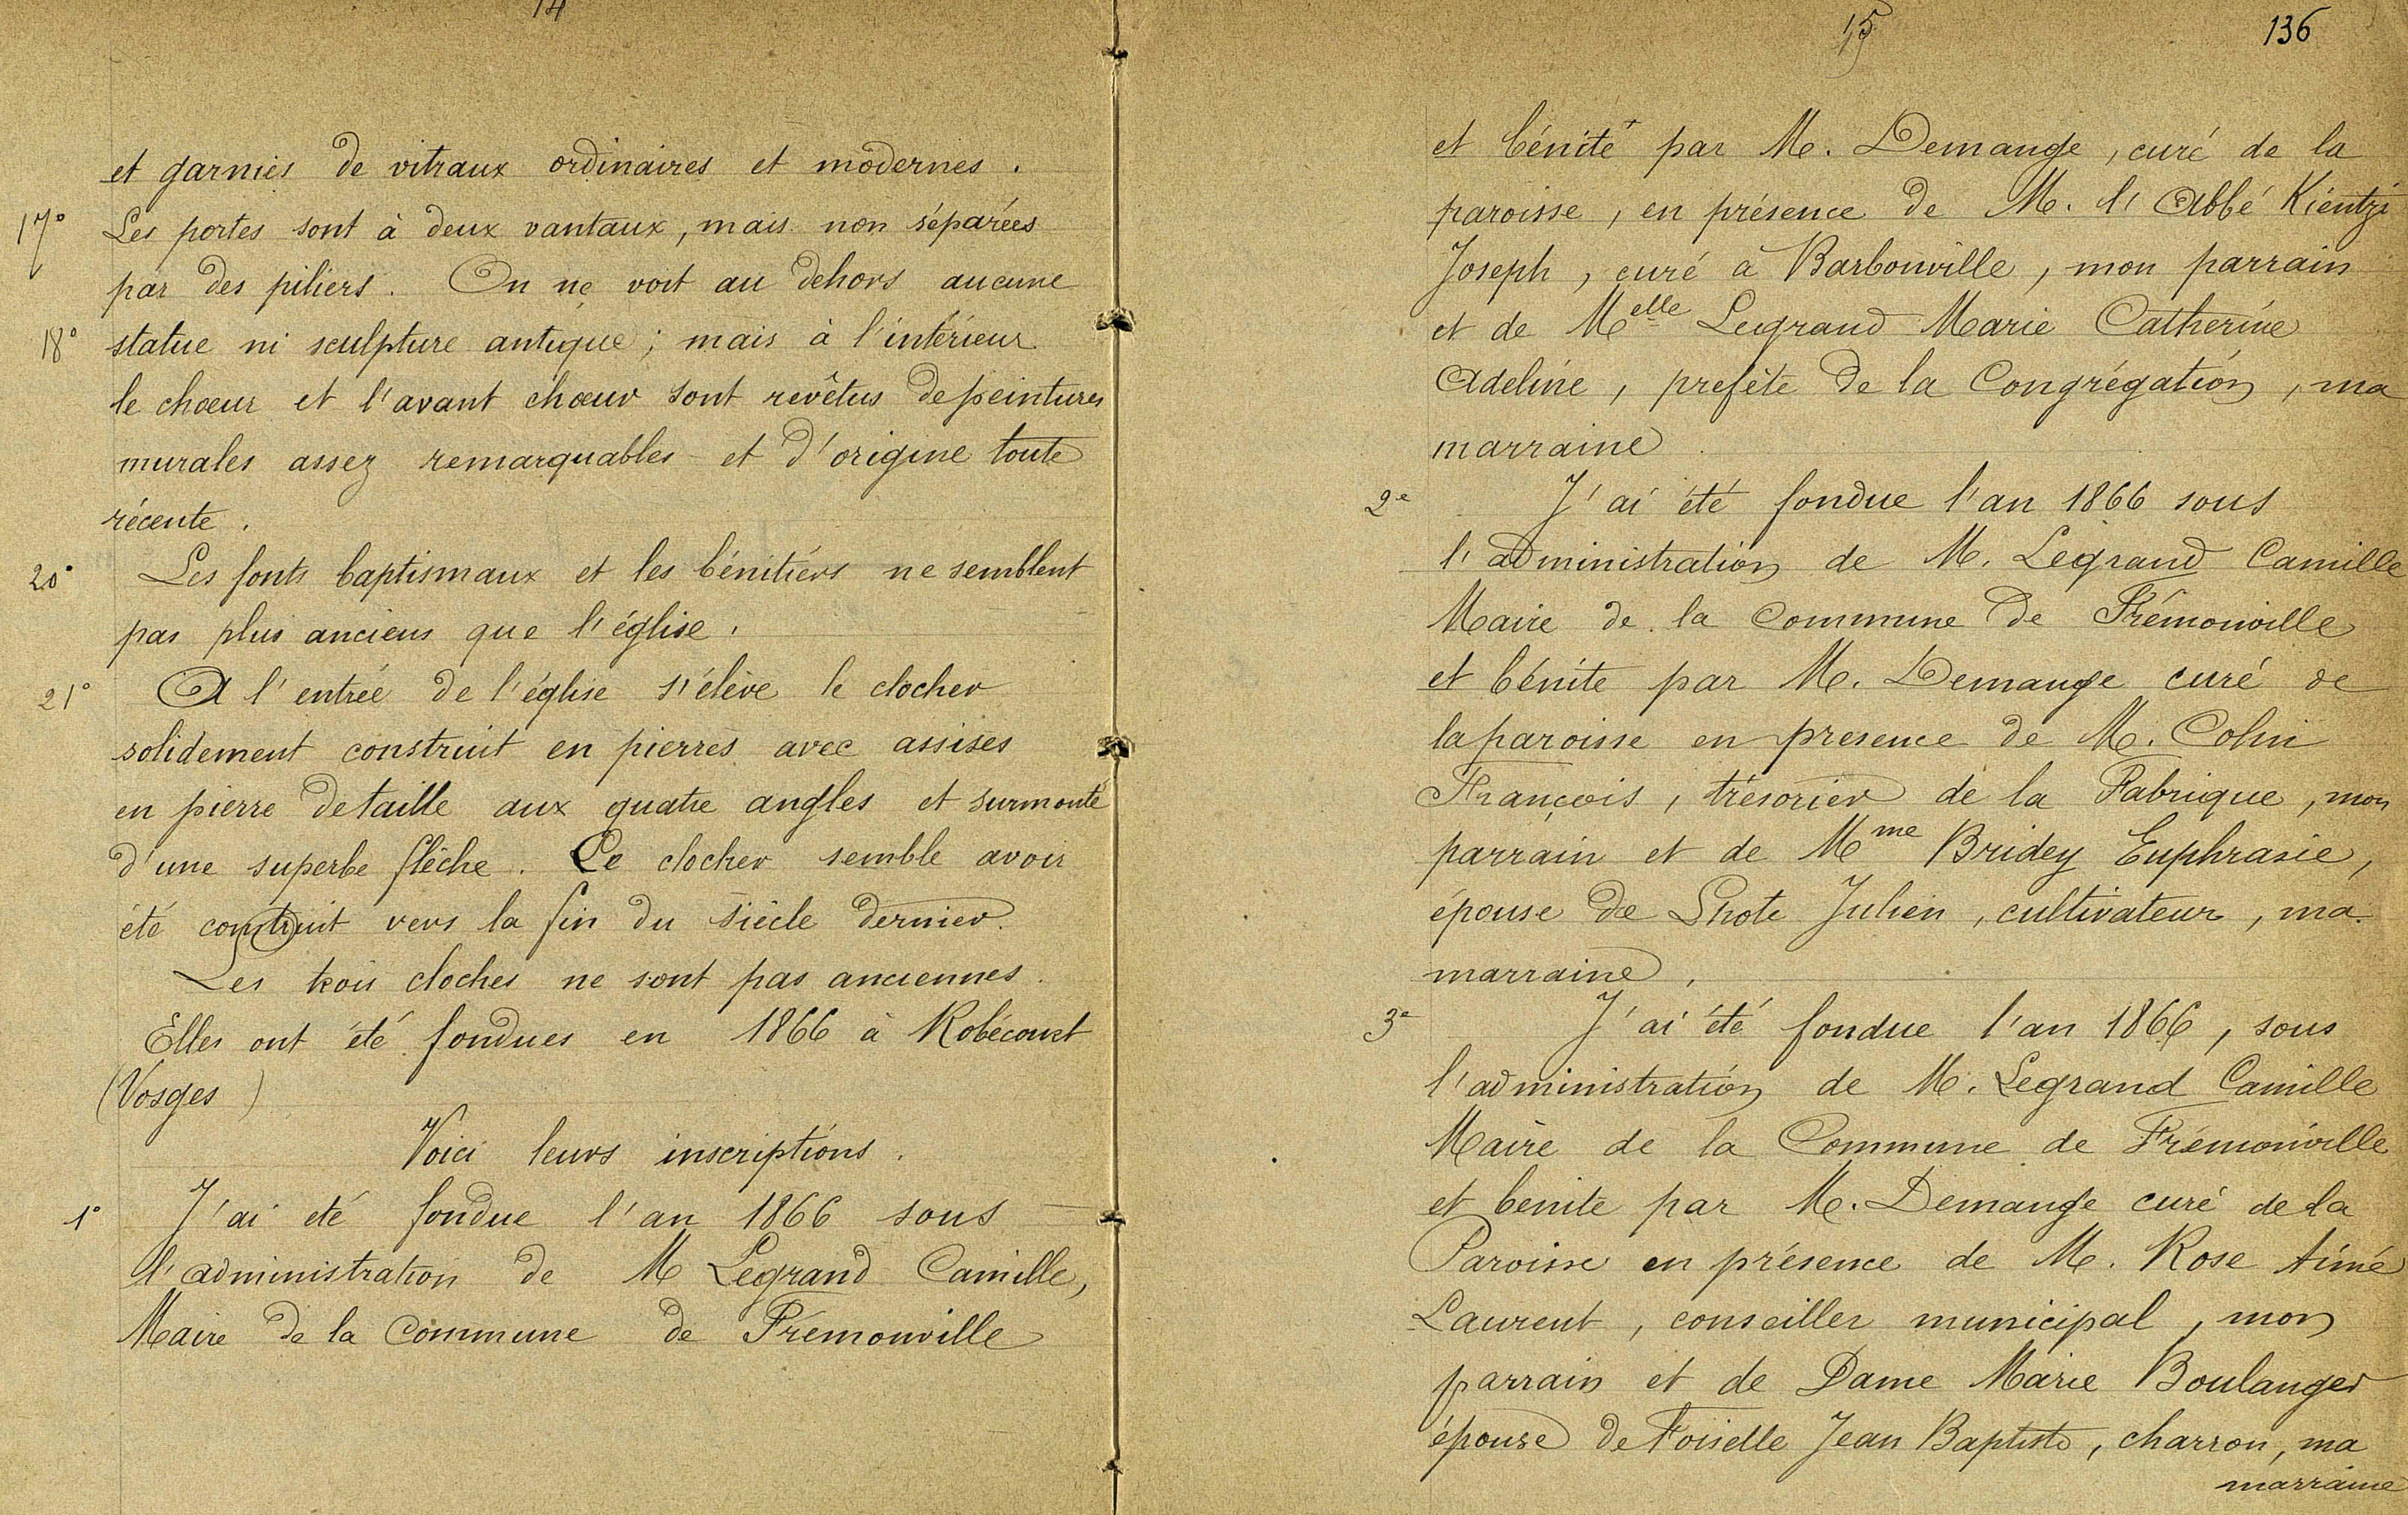 14
et garnies de vitraux ordinaires et modernes.
17° Les portes sont à deux vantaux, mais non séparées
par des piliers. On ne voit au dehors aucune
18° statue ni sculpture antique; mais à l'intérieur
le chœur et l'avant chœur sont revêtus de peintures
murales assez remarquables et d'origine toute
récente.
20° Les fonts baptismaux et les bénitiers ne semblent
pas plus anciens que l'église.
21° A l'entrée de l'église s'élève le clocher
solidement construit en pierres avec assises
en pierre de taille aux quatre angles et surmonté
d'une superbe flèche. Le clocher semble avoir
été construit vers la fin du siècle dernier.
Les trois cloches ne sont pas anciennes.
Elles ont été fondues en 1866 à Robécourt
(Vosges)
Voici leurs inscriptions.
1° J'ai été fondue l'an 1866 sous
l'administration de M Legrand Camille,
Maire de la Commune de Frémonville
15
136
et bénite par M. Demange, curé de la
paroisse, en présence de M. l'Abbé Kientzi
Joseph, curé à Barbonville, mon parrain
et de Melle Legrand Marie Catherine
Adeline, prefète de la Congrégation, ma
marraine
2e J'ai été fondue l'an 1866 sous
l'administration de M. Legrand Camille
Maire de la Commune de Frémonville
et bénite par M. Demange curé de
la paroisse en presence de M. Colin
François, trésorier de la Fabrique, mon
parrain et de Mme Bridey Euphrasie,
épouse de Lhote Julien, cultivateur, ma
marraine.
3e J'ai été fondue l'an 1866, sous
l'administration de M. Legrand Camille
Maire de la Commune de Frémonville
et benite par M. Demange curé de la
Paroisse en présence de M. Rose Aimé
Laurent, conseiller municipal, mon
parrain et de Dame Marie Boulanger
épouse de Foiselle Jean Baptiste, charron, ma
marraine